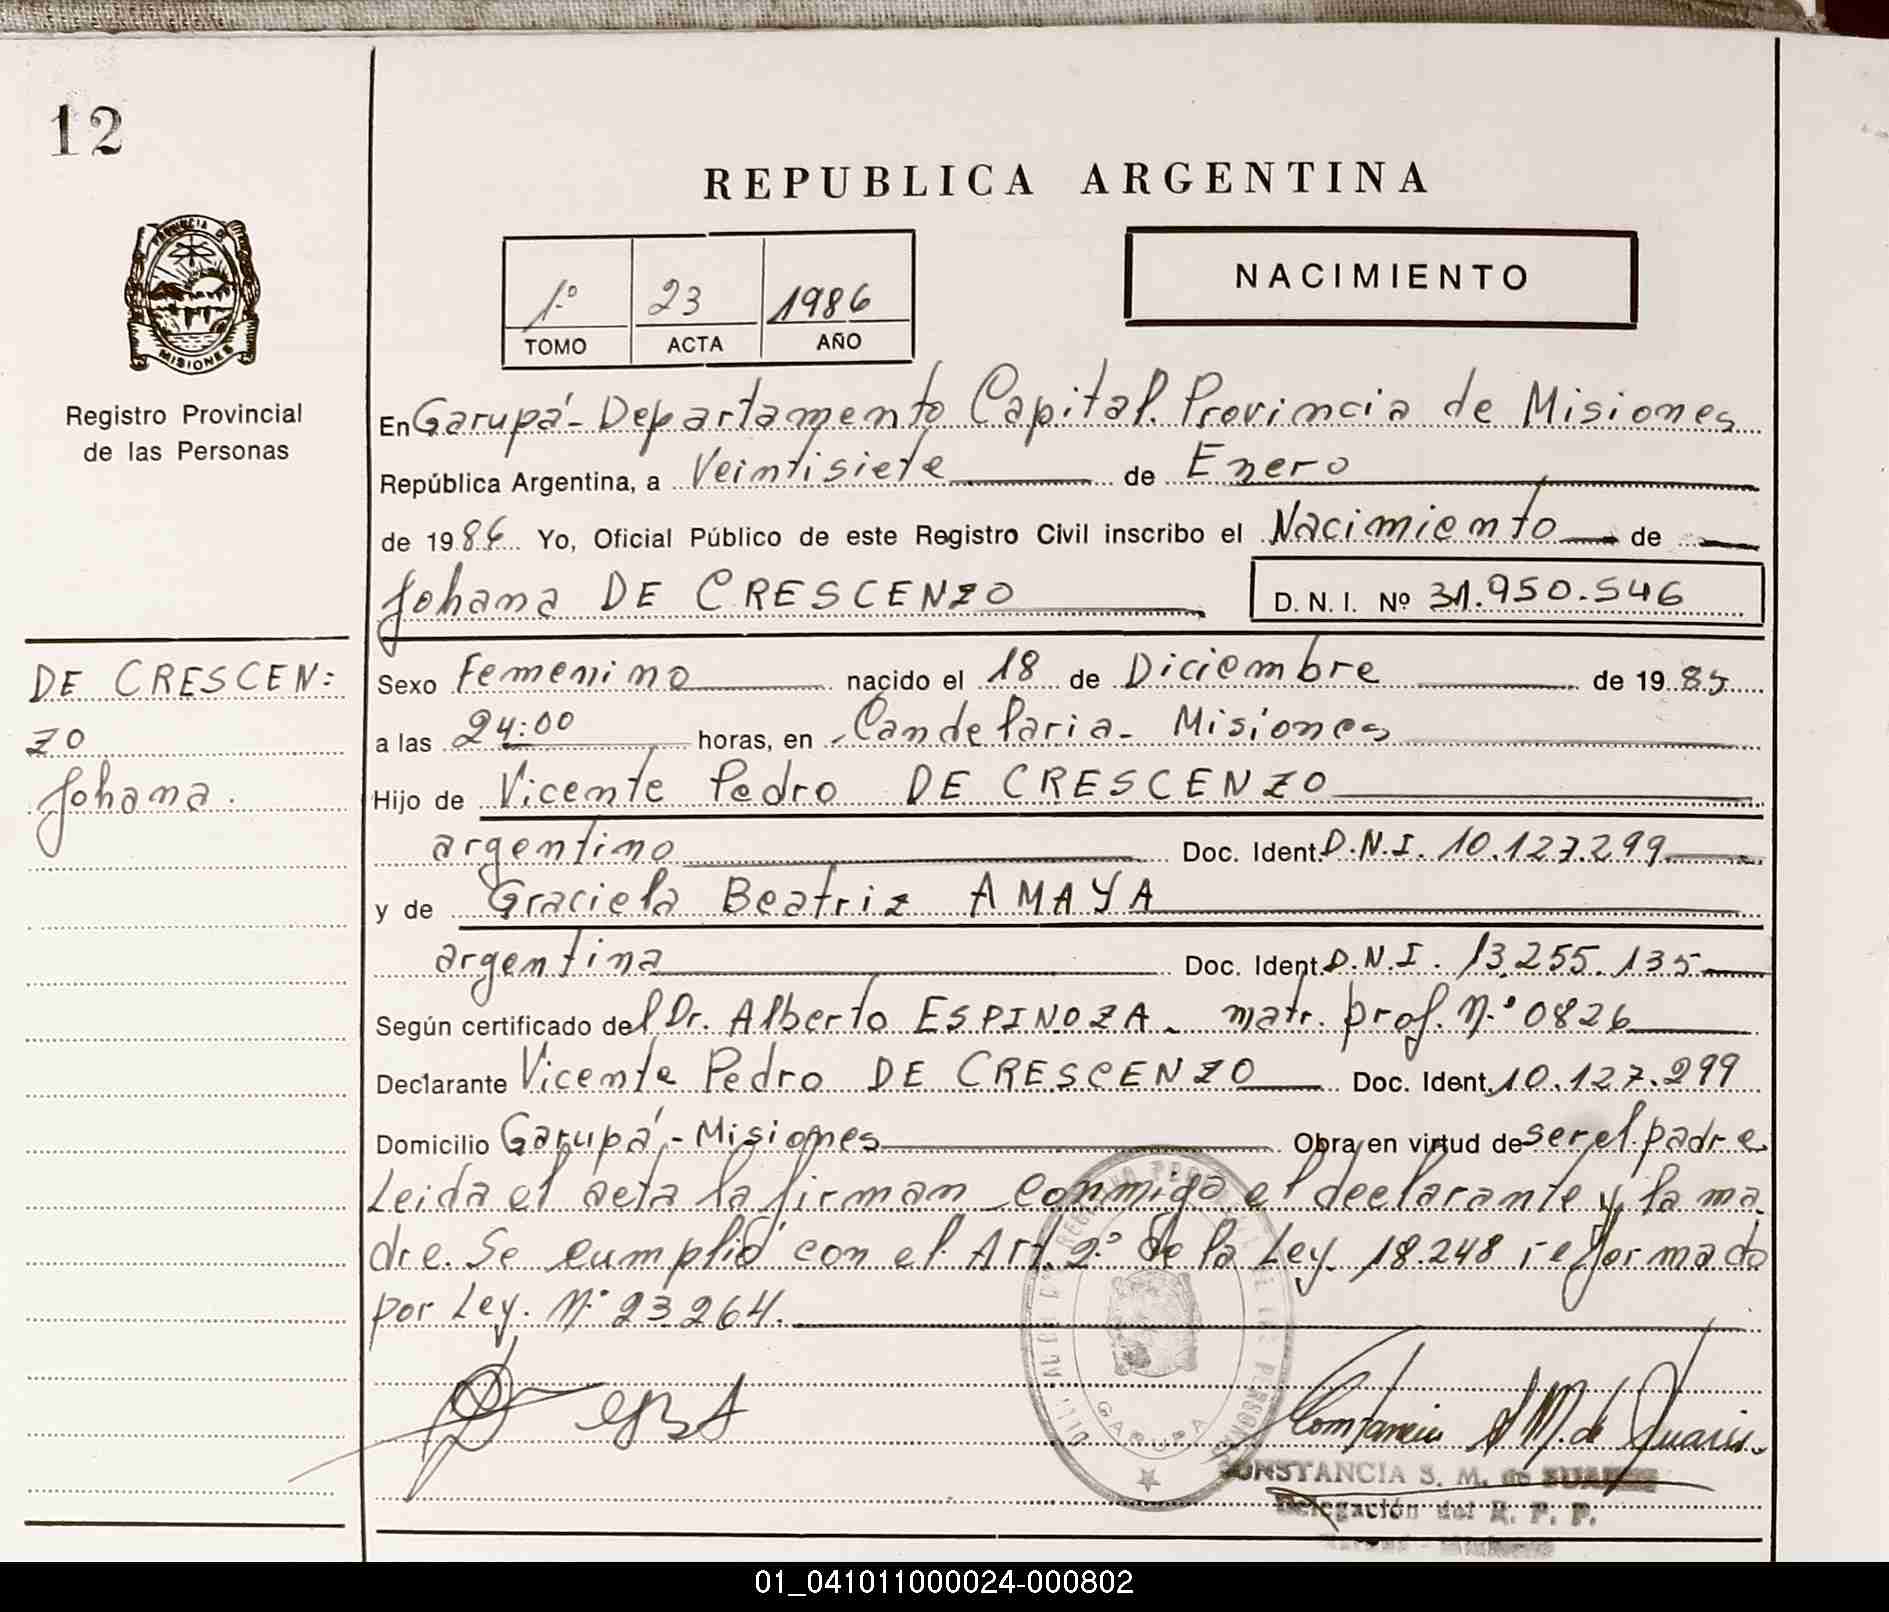 12
REPUBLICA ARGENTINA
PROVINCIA DE
MISIONES
1º 23 1986
TOMO ACTA AÑO
NACIMIENTO
Registro Provincial
de las Personas
En Garupá - Departamento Capital. Provincia de Misiones
República Argentina, a Veintisiete de Enero
de 1986 Yo, Oficial Público de este Registro Civil inscribo el Nacimiento de
Johana DE CRESCENZO D. N. I. Nº 31.950.546
DE CRESCEN=
ZO
Johana.
Sexo Femenino nacido el 18 de Diciembre de 1985
a las 24:00 horas, en Candelaria - Misiones
Hijo de Vicente Pedro DE CRESCENZO
argentino Doc. Ident. D.N.I. 10.127.299
y de Graciela Beatriz AMAYA
argentina Doc. Ident. D.N.I. 13.255.135
Según certificado del Dr. Alberto ESPINOZA - matr. prof. N.º 0826
Declarante Vicente Pedro DE CRESCENZO Doc. Ident. 10.127.299
Domicilio Garupá - Misiones Obra en virtud de ser el padre
Leida el acta la firman conmigo el declarante y la ma-
dre. Se cumplió con el Art. 2º de la Ley 18.248 reformado
por Ley. N.º 23264.
GARUPA
CONSTANCIA S. M. de SUAREZ
Delegación del R. P. P.
01_041011000024-000802